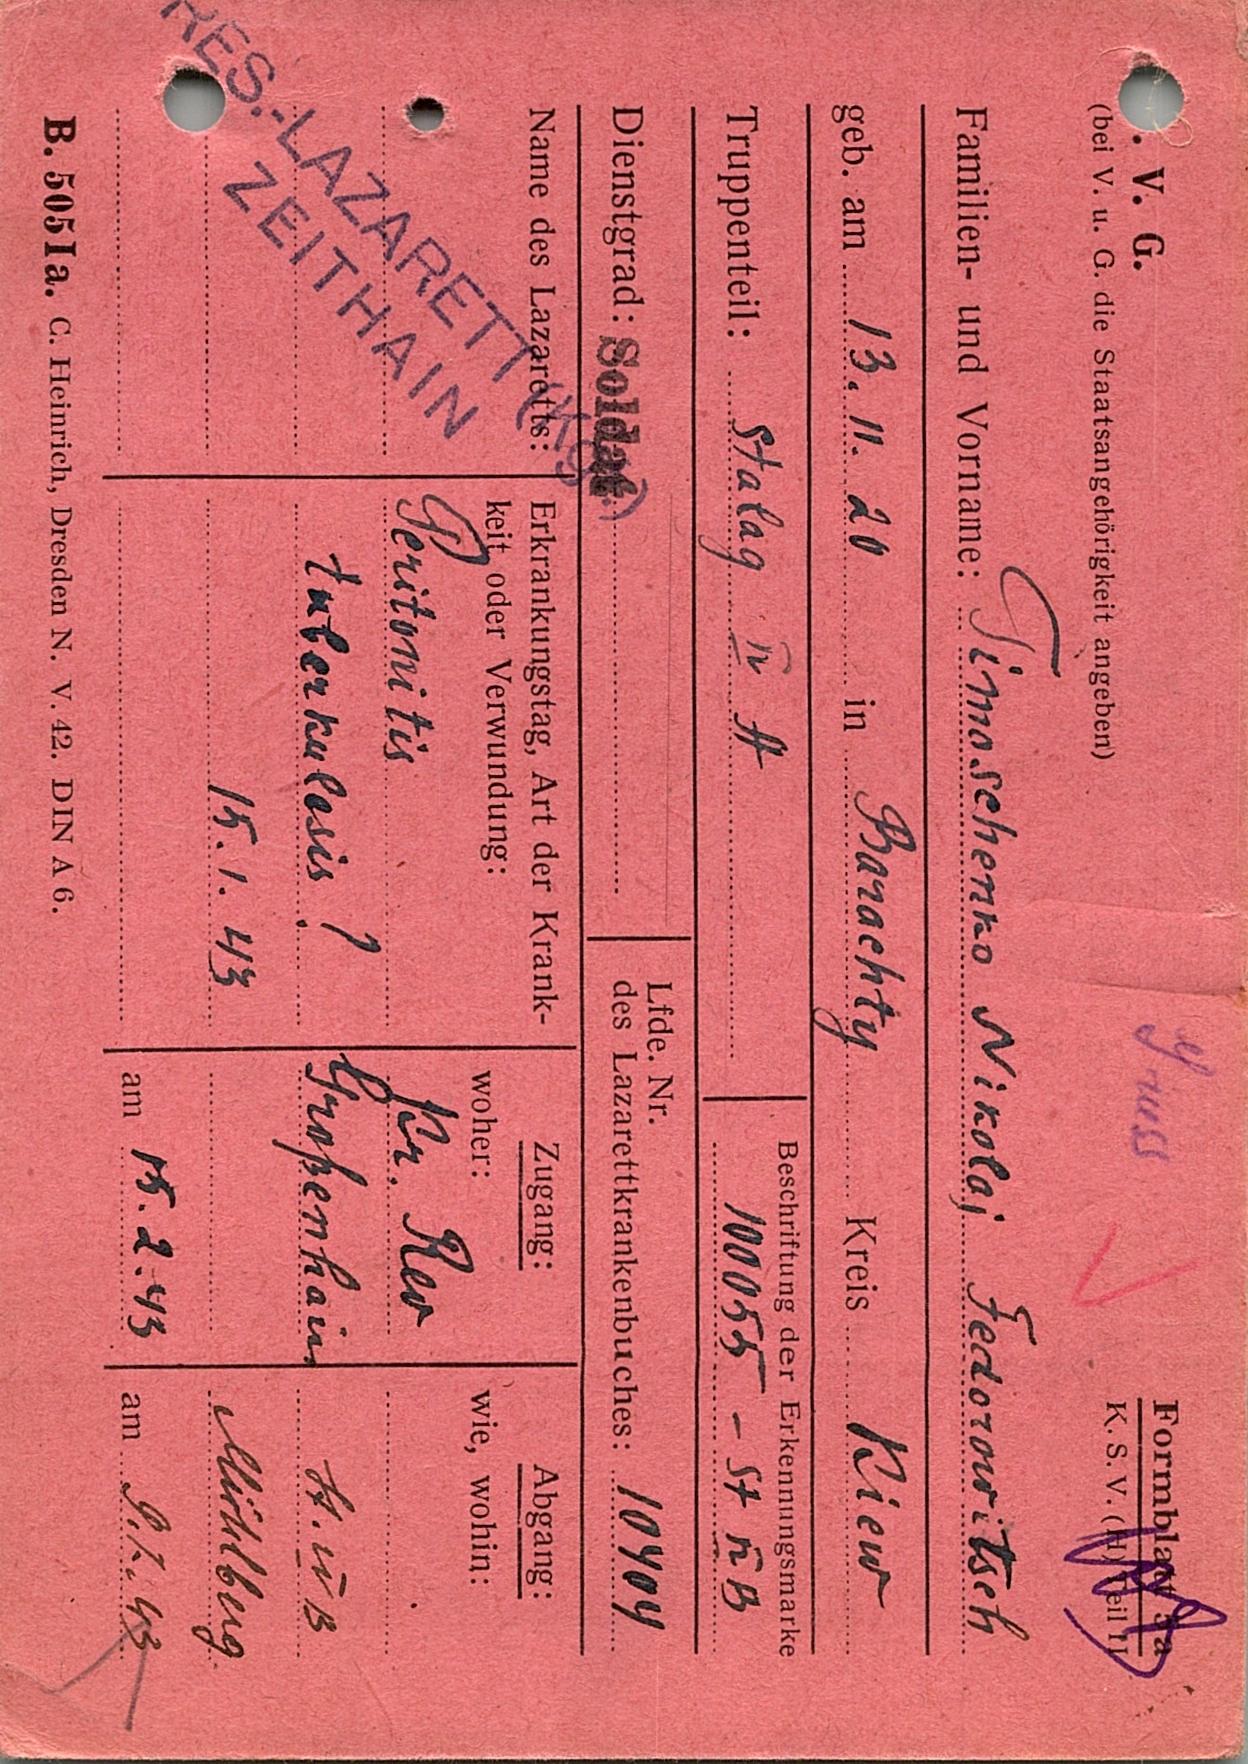 . V. G.
(bei V. u. G. die Staatsangehörigkeit angeben)
Formblatt 5a
K. S. V. (H) Teil II
Familien- und Vorname: Timoschenko Nikolaj Fedorowitsch
geb. am 13. 11. 20 in Barachty Kreis Kiew
Truppenteil: Stalag IV A
Beschriftung der Erkennungsmarke
100055 - St IV B
Dienstgrad: Soldat
Lfde. Nr.
des Lazarettkrankenbuches: 10404
Name des Lazaretts:
RES.-LAZARETT (Kgf.)
ZEITHAIN
Erkrankungstag, Art der Krank-
keit oder Verwundung:
Peritonitis
tuberkulosis ?
15. 1. 43
Zugang:
woher:
Kr. Rev
Großenhain
am 15. 2. 43
Abgang:
wie, wohin:
St. IV B
Mühlberg
am 9. 7. 43
B. 505 Ia. C. Heinrich, Dresden N. V. 42. DIN A 6.